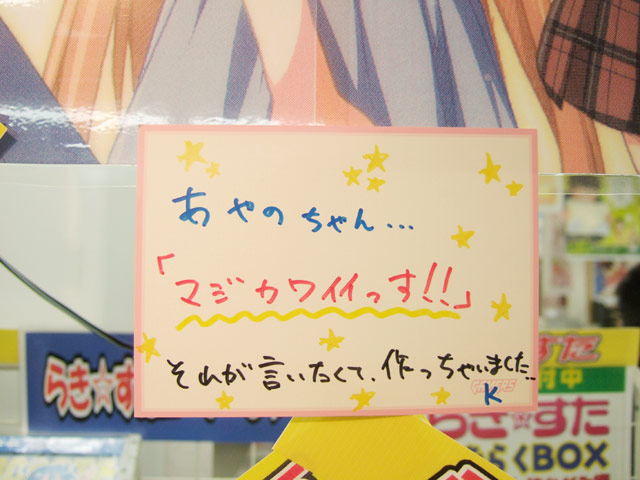 あやのちゃん...
「マジカワイイっす!!」
それが言いたくて、作っちゃいました
GAMERS
K
らき☆す
すた
付中
らき☆すた
らくBOX